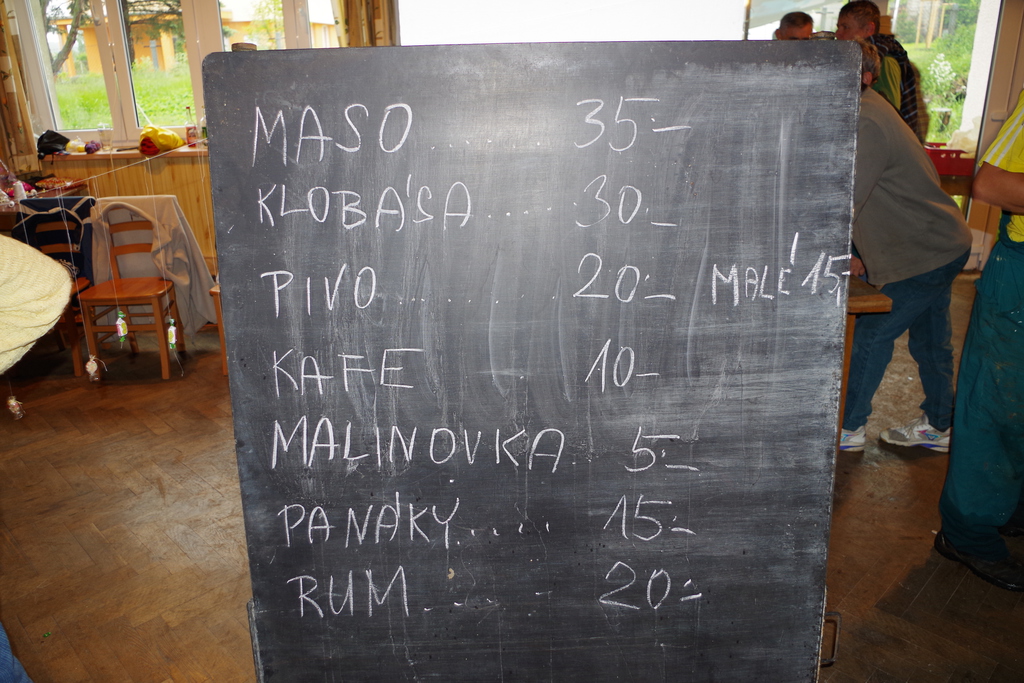 MASO ........ 35.-
KLOBÁSA ..... 30.-
PIVO ........ 20.- MALÉ 15,-
KAFE 10.-
MALINOVKA. 5.-
PANÁKY.... 15.-
RUM ..... 20.-